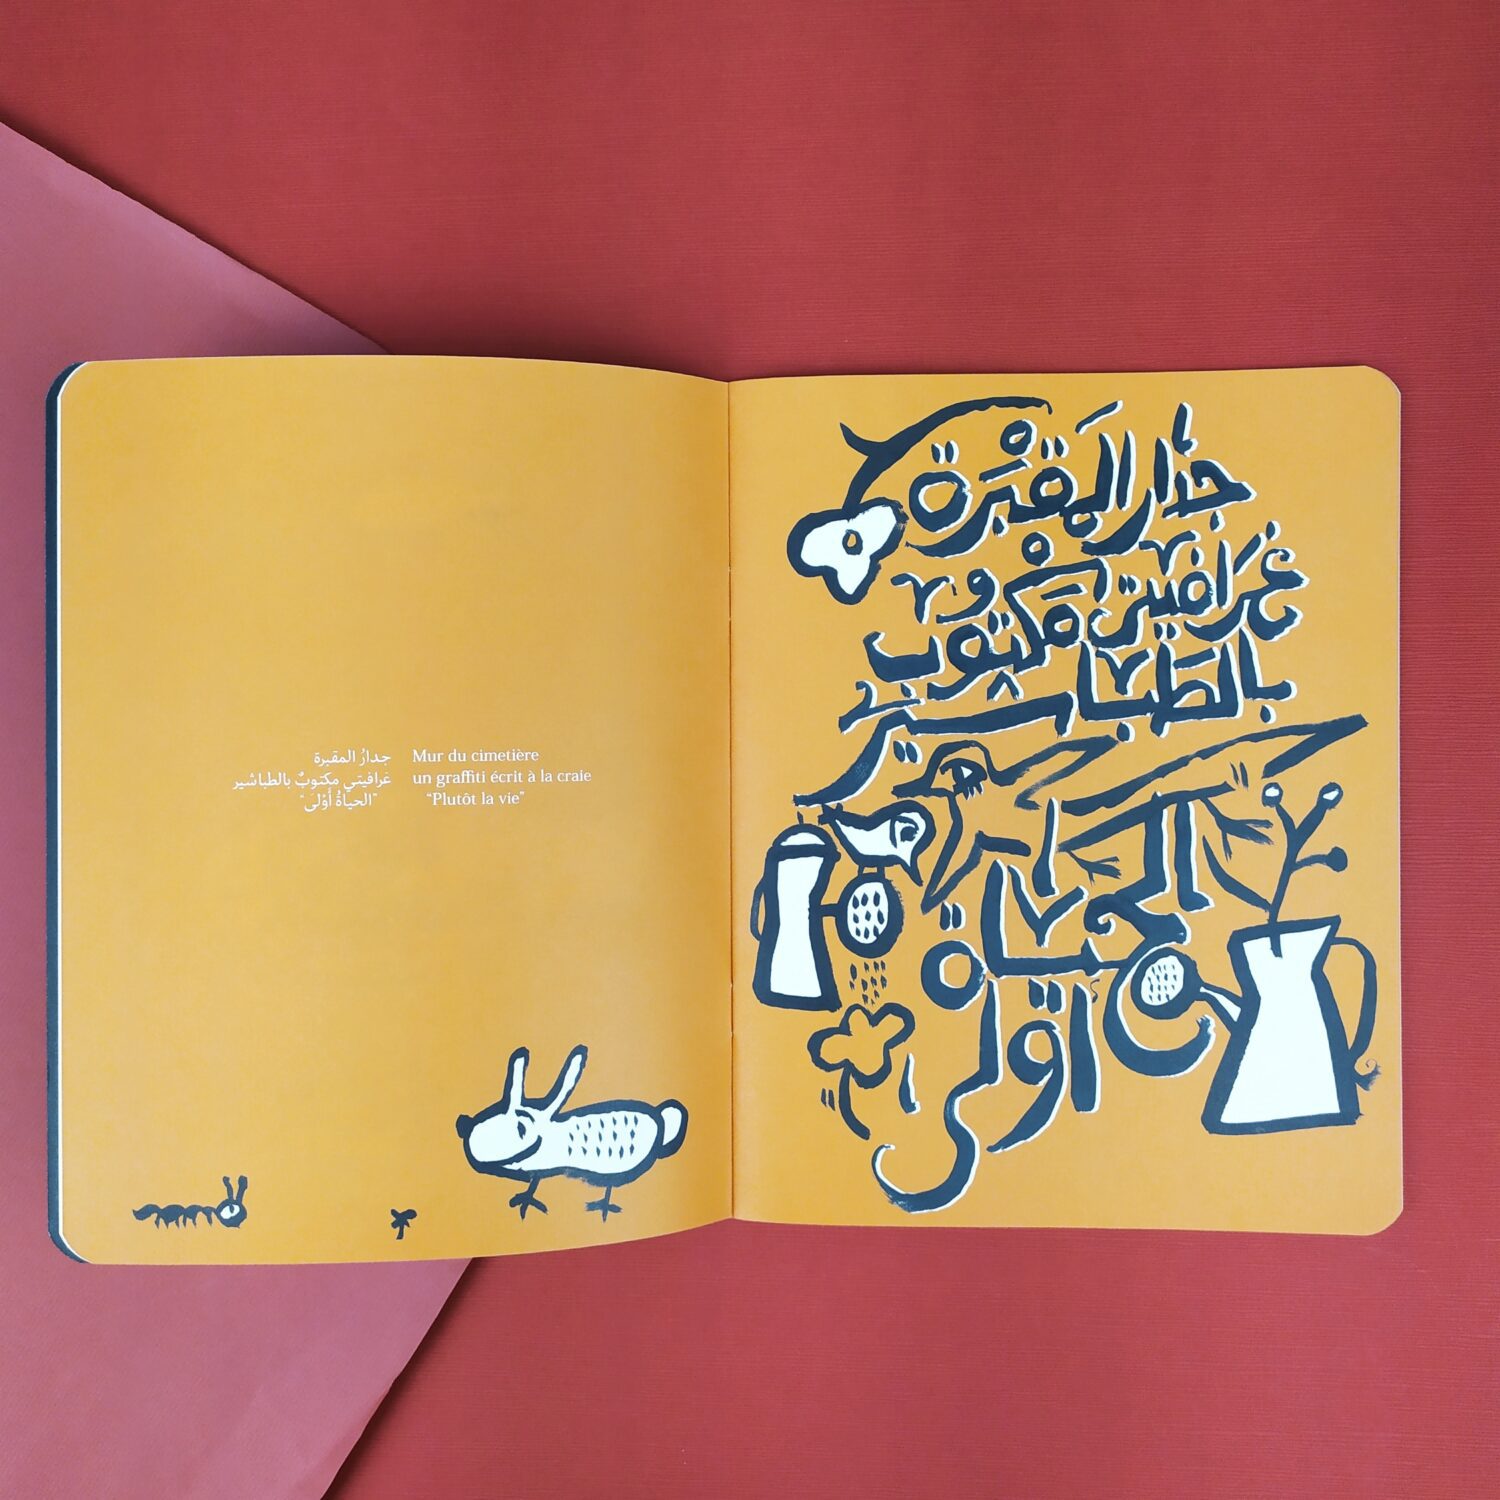 جدارُ المقبرة
غرافيتي مكتوبٌ بالطباشير
"الحياةُ أَوْلىَ"
Mur du cimetière
un graffiti écrit à la craie
"Plutôt la vie"
جدار المقْبَرة
غرَافيتي مَكْتوب
بالطَبَاشير
الحياة
أوْلى